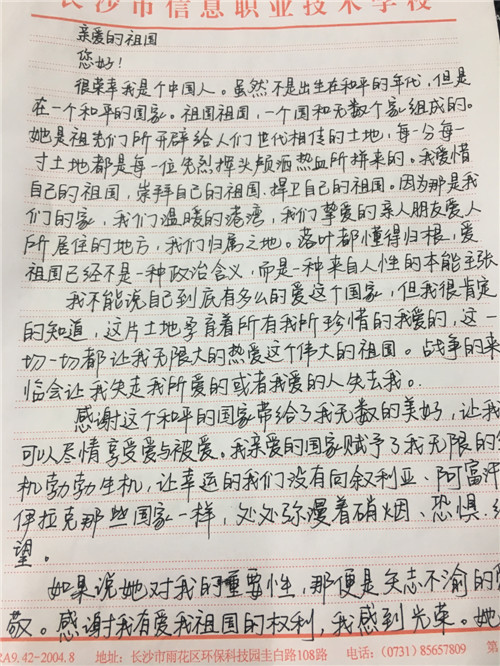 长沙市信息职业技术学校
亲爱的祖国
您好！
很荣幸我是个中国人。虽然不是出生在和平的年代，但是
在一个和平的国家。祖国祖国，一个国和无数个家组成的。
她是祖先们所开辟给人们世代相传的土地，每一分每一
寸土地都是每一位先烈挥头颅洒热血所拼来的。我爱惜
自己的祖国，崇拜自己的祖国.捍卫自己的祖国。因为那是我
们的家，我们温暖的港湾，我们挚爱的亲人朋友爱人
所居住的地方，我们归属之地。落叶都懂得归根，爱
祖国已经不是一种政治含义，而是一种来自人性的本能主张
我不能说自己到底有多么的爱这个国家，但我很肯定
的知道，这片土地孕育着所有我所珍惜的我爱的，这一
切一切都让我无限大的热爱这个伟大的祖国。战争的来
临会让我失走我所爱的或者我爱的人失去我。
感谢这个和平的国家带给了我无数的美好，让我
可以尽情享受爱与被爱。我亲爱的国家赋予了我无限的生
机勃勃生机，让幸运的我们没有向叙利亚、阿富汗
伊拉克那些国家一样，处处弥漫着硝烟、恐惧、绝
望。
如果说她对我的重要性，那便是矢志不渝的
敬。感谢我有爱我祖国的权利，我感到光荣。她
RA9.42-2004.8 地址：长沙市雨花区环保科技园圭白路108路 电话：(0731) 85657809 第